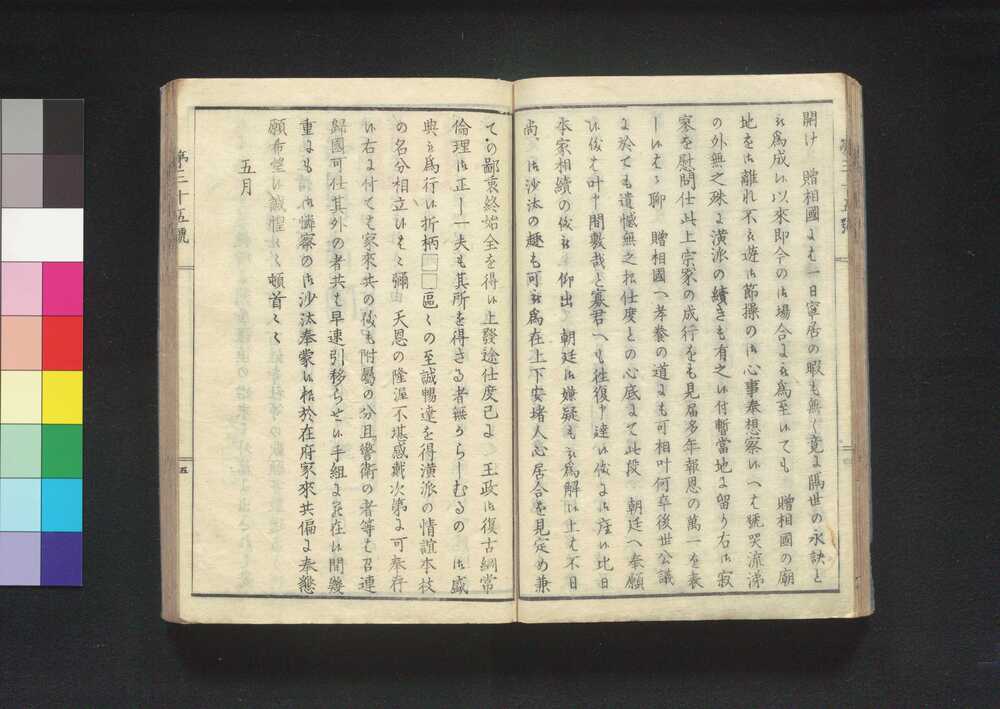 開け　贈相國にも一日寧居の暇も無く竟に隔世の永訣と
被爲成候以來即今の御場合に被爲至候ても　贈相國の廟
地を御離れ不被遊御節操の御心事奉想察候へは號哭流涕
の外無之殊に潢派の續きも有之候付暫當地に留り右御寂
寥を慰問仕此上宗家の成行をも見届多年報恩の萬一を表
し候はゝ聊　贈相國へ孝養の道にも可相叶何卒後世公議
に於ても遺憾無之樣仕度との心底にて此段　朝廷へ奉願
候儀は叶申間敷哉と寡君へも往復申達候儀に御座候比日
本家相續の儀被　仰出　朝廷御嫌疑も被爲解候上は不日
尚御沙汰の趣も可被爲在上下安堵人心居合を見定め兼
ての鄙衷終始全を得候上發途仕度已に　王政御復古綱常
倫理御正し一夫も其所を得さる者無からしむるの　御盛
典被爲行候折柄□□區々の至誠暢達を得潢派の情誼本枝
の名分相立候はゝ彌　天恩の隆渥不堪感戴次第に可奉存
候右に付ても家來共の儀も附屬の分且警衛の者等は召連
歸國可仕其外の者共は早速引移らせ候手組に罷在候間幾
重にも御憐察の御沙汰奉蒙候樣於在府家來共偏に奉懇
願希望候誠惶誠々頓首々々
五月
第三十五號
五